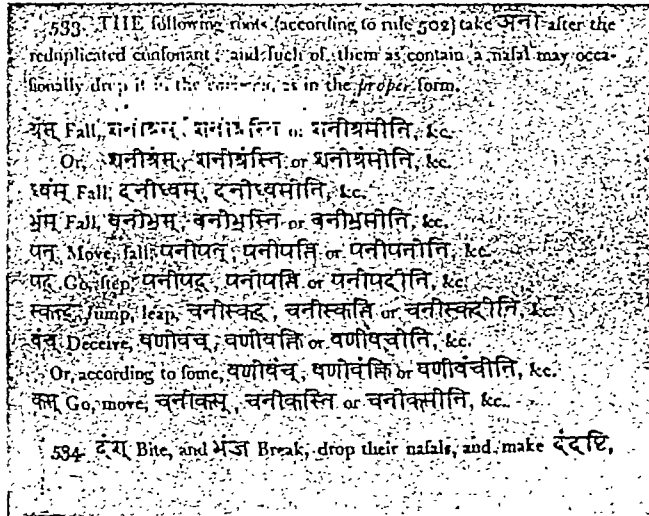 533. THE following roots (according to rule 502) take अनी after the
reduplicated consonant; and such of them as contain a nasal may occa-
sionally drop it in the common, as in the proper form.
Fall, शनीश्रस्, शनीश्रस्ति or शनीश्रसीति, &c.
Or, शनीश्रंस्, शनीश्रंस्ति or शनीश्रंसीति, &c.
ध्वंस् Fall, दनीध्वस्, दनीध्वसीति, &c.
भ्रंस् Fall, बनीभ्रस्, बनीभ्रस्ति or बनीभ्रसीति, &c.
पत् Move, fall, पनीपत्, पनीपत्ति or पनीपतीति, &c.
पद् Go, step, पनीपद्, पनीपत्ति or पनीपदीति, &c.
स्कन्द् Jump, leap, चनीस्कद्, चनीस्कत्ति or चनीस्कदीति, &c.
वंच् Deceive, वणीवच्, वणीवक्ति or वणीवचीति, &c.
Or, according to some, वणीवंच्, वणीवंक्ति or वणीवंचीति, &c.
कस् Go, move, चनीकस्, चनीकस्ति or चनीकसीति, &c.
534. दंश् Bite, and भंज Break, drop their nasals, and make दंदष्टि,